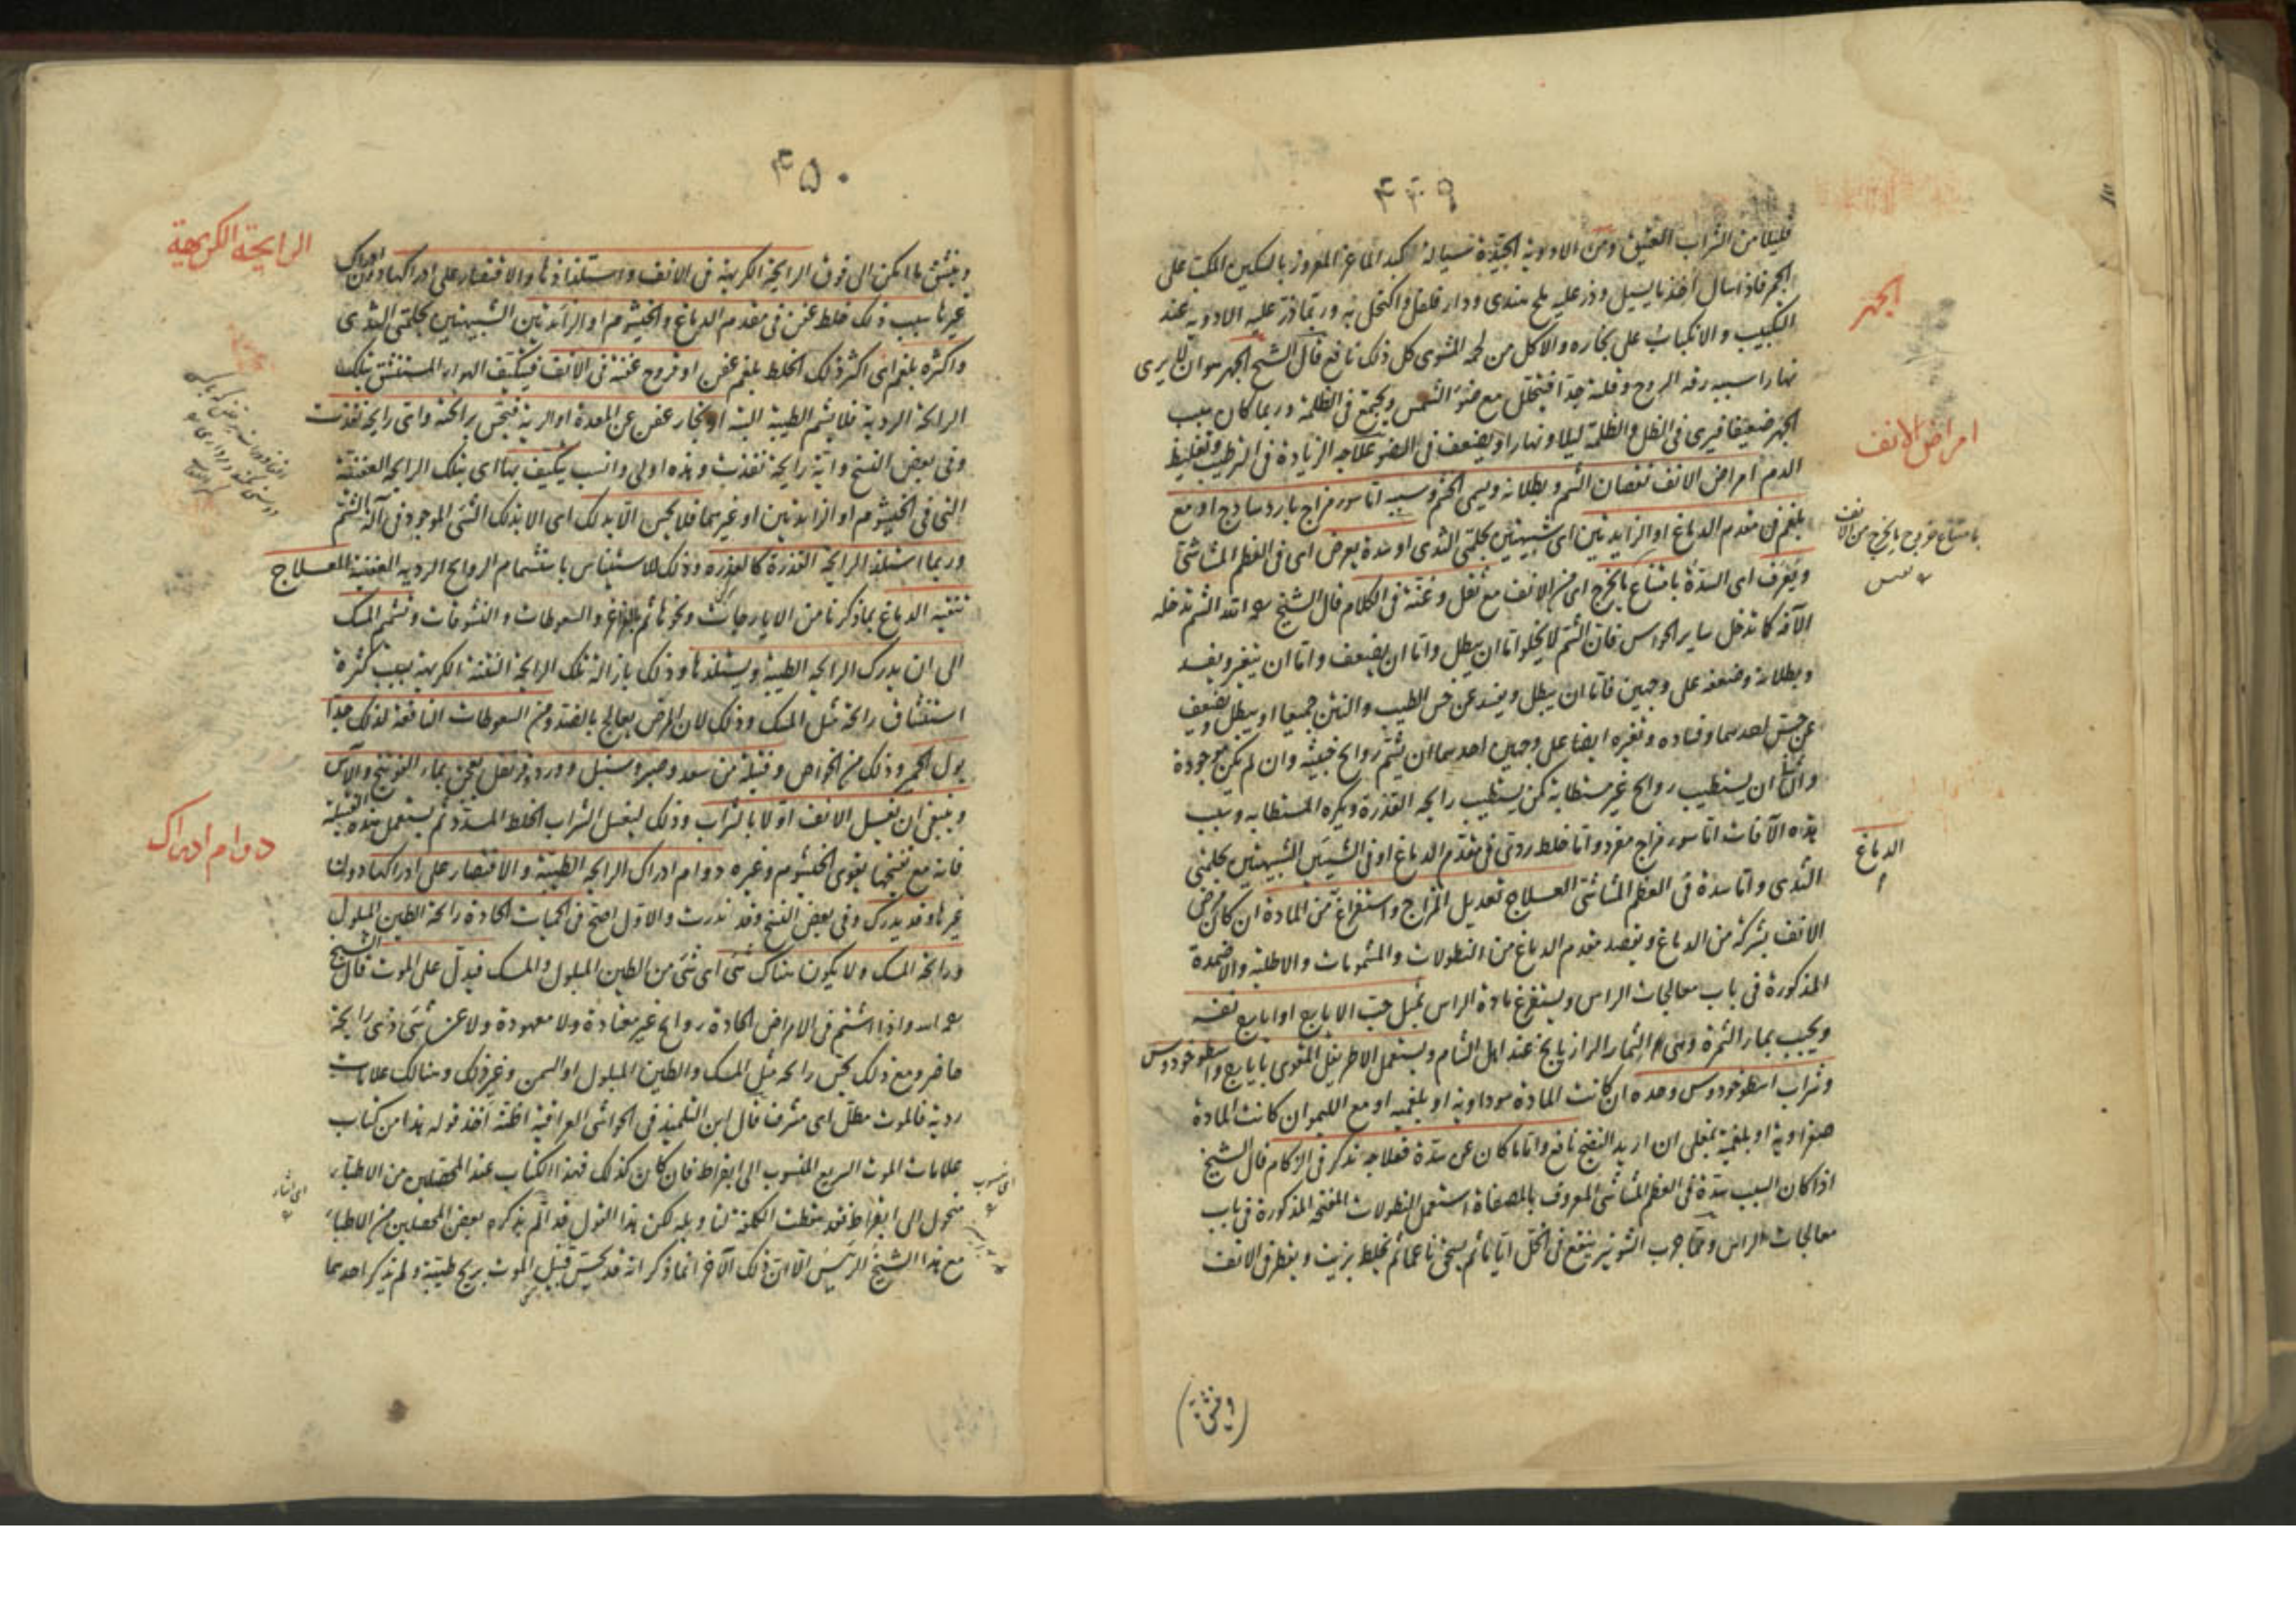 ۴۴۹
قليلا من الشراب العتيق ومن الادوية الجيدة سيالة كبد الماعز المغروز بالسكين المكبب على
الجمر فاذا سال اخذ ما يسيل وذر عليه ملح هندى ودار فلفل واكتحل به وربما ذر عليه الادوية عند
التكبيب والانكباب على بخاره والاكل من لحمه المشوى كل ذلك نافع قال الشيخ الجهر هو ان لا يرى
الجهر
نهارا سببه رقة الروح وقلته جدا فيتحلل مع ضوء الشمس ويجتمع فى الظلمة وربما كان سبب
الجهر ضعيفا فيرى فى الظل والظلمة ليلا ونهارا ويضعف فى الضوء علاجه الزيادة فى الترطيب وتغليظ
امراض الانف
الدم امراض الانف نقصان الشم وبطلانه ويسمى الخشم وسببه اما سوء مزاج بارد ساذج او مع
بلغم فى مقدم الدماغ او الزايدتين اى شبيهتين بحلمتى الثدى او سدة بعرض اى فى العظم المشاشى
بامتناع خروج ما يخرج من الانف
ويعرف اى السدة بامتناع ما يخرج اى من الانف مع ثقل وغنة فى الكلام قال الشيخ رحمه الله الشم تدخله
الآفة كما تدخل ساير الحواس فان الشم لا يخلو اما ان يبطل واما ان يضعف واما ان يتغير ويفسد
وبطلانه وضعفه على وجهين فاما ان يبطل ويفسد عن حس الطيب والنتن جميعا او يبطل ويضعف
عن حس احدهما وفساده وتغيره ايضا على وجهين احدهما ان يشم روايح خبيثة وان لم يكن موجودة
والثانى ان يستطيب روايح غير مستطابة كمن يستطيب رايحة القذرة ويكره المستطابه وسبب
هذه الآفات اما سوء مزاج مفرد واما خلط ردئ فى مقدم الدماغ او فى الشيئين الشبيهتين بحلمتى
الدماغ
الثدى واما سدة فى العظم المشاشى العـــلاج تعديل المزاج واستفراغ من المادة ان كان مرض
الانف بشركة من الدماغ ويقصد مقدم الدماغ من النطولات والمشمومات والاطلية والاضمدة
المذكورة فى باب معالجات الراس ويستفرغ مادة الراس بمثل حب الايارج او ايارج نفسه
ويجب بماء الثمرة وهى الثمار الرازيانج عند اهل الشام ويستعمل الاطريفل المقوى بايارج واسطوخودوس
وشراب اسطوخودوس وحده ان كانت المادة سوداوية او بلغميه او مع الليمو ان كانت المادة
صفراوية او بلغمية بمغلى ان اريد النضج نافع واما ما كان عن سدة فعلاجه نذكر فى الزكام قال الشيخ
اذا كان السبب سدة فى العظم المشاشى المعروف بالمصفاة استعمل النطولات المفتحة المذكورة فى باب
معالجات الراس ومما جرب الشونيز ينقع فى الخل اياما ثم يسحق ناعما ثم يخلط بزيت ويقطر فى الانف
(وينشق)
۴۵۰
الرايحة الكريهة
وينشق ما امكن الى فوق الرايحة الكريهة فى الانف واستلذاذها والاقتصار على ادراكها دون ادراك
غيرها سبب ذلك خلط عفن فى مقدم الدماغ والخيشوم او الزائدتين الشبيهتين بحلمتى الثدى
واكثره بلغم اى اكثر ذلك الخلط بلغم عفن او قروح عفنة فى الانف فيتكيف الهواء المستنشق بتلك
الرايحة الردية فلا يشم الطيبة البتة او بخار عفن عن المعدة او الرية فيحس برائحته واتى رايحة نفذت
وفى بعض النسخ واية رايحة نفذت وهذه اولى وانسب يتكيف بها اى بتلك الرايحة العفنة
التى فى الخيشوم او الزايدتين او غيرهما فلا يحس الا بذلك اى الا بذلك الشئ الموجود فى آلة الشم
وربما استلذ الرايحة القذرة كالعذرة وذلك للاستيناس باشتمام الروايح الردية العفنة العـــلاج
تنقية الدماغ بما ذكرنا من الايارجات ونحوها ثم بالغراغر والسعوطات والنشوقات وتشميم المسك
الى ان يدرك الرايحة الطيبة ويستلذها وذلك بازالة تلك الرايحة النتنة الكريهة بسبب كثرة
استنشاق رائحة مثل المسك وذلك لان المرض يعالج بالضد ومن السعوطات النافعة لذلك جدا
بول الحمير وذلك من الخواص وفتيلة من سعد وصبر وسنبل وورد وقرنفل يعجن بماء الفوتنج والآس
وينبغى ان يغسل الانف اولا بالشراب وذلك ليغسل الشراب الخلط المسدد ثم يستعمل هذه الفتيلة
دوام ادراك
فانه مع تفتيحها يقوى الخيشوم وغيره دوام ادراك الرايحة الطيبة والاقتصار على ادراكها دون
غيرها وقد يدرك وفى بعض النسخ وقد نذرت والاول اصح فى الحميات الحادة رائحة الطين المبلول
ورائحة المسك ولا يكون هناك شئ اى شئ من الطين المبلول والمسك فيدل على الموت قال الشيخ
رحمه الله واذا اشتم فى الامراض الحادة روايح غير معتادة ولا معهودة ولا عن شئ ذى رايحة
حاضر ومع ذلك يحس رائحة مثل المسك والطين المبلول او السمن وغير ذلك وهنالك علامات
ردية فالموت مطل اى مشرف قال ابن التلميذ فى الحواشى العراقية اظنه اخذ قوله هذا من كتاب
علامات الموت السريع المنسوب الى ابقراط فان كان كذلك فهذا الكتاب عند المحصلين من الاطباء
منحول الى ابقراط فقد سقطت الكلفة لنا وبله لكن هذا القول قد الم بذكره بعض المحصلين من الاطباء
مع هذا الشيخ الرئيس الا ان ذلك الآخر انما ذكر انه قد يحس قبل الموت بريح طيبة ولم يذكر احدهما